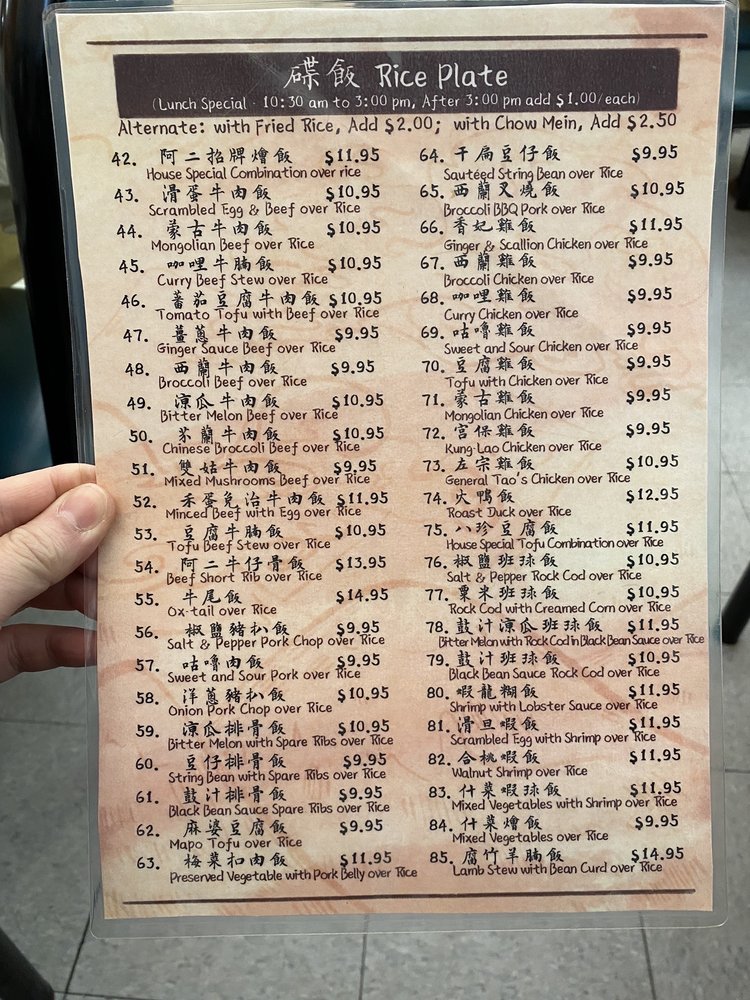 碟飯 Rice Plate
(Lunch Special · 10:30 am to 3:00 pm, After 3:00 pm add $1.00/each)
Alternate: with Fried Rice, Add $2.00; with Chow Mein, Add $2.50
42. 阿二招牌燴飯 $11.95
House Special Combination over rice
43. 滑蛋牛肉飯 $10.95
Scrambled Egg & Beef over Rice
44. 蒙古牛肉飯 $10.95
Mongolian Beef over Rice
45. 咖哩牛腩飯 $10.95
Curry Beef Stew over Rice
46. 蕃茄豆腐牛肉飯 $10.95
Tomato Tofu with Beef over Rice
47. 薑蔥牛肉飯 $9.95
Ginger Sauce Beef over Rice
48. 西蘭牛肉飯 $9.95
Broccoli Beef over Rice
49. 涼瓜牛肉飯 $10.95
Bitter Melon Beef over Rice
50. 芥蘭牛肉飯 $10.95
Chinese Broccoli Beef over Rice
51. 雙菇牛肉飯 $9.95
Mixed Mushrooms Beef over Rice
52. 禾蛋免治牛肉飯 $11.95
Minced Beef with Egg over Rice
53. 豆腐牛腩飯 $10.95
Tofu Beef Stew over Rice
54. 阿二牛仔骨飯 $13.95
Beef Short Rib over Rice
55. 牛尾飯 $14.95
Ox-tail over Rice
56. 椒鹽豬扒飯 $9.95
Salt & Pepper Pork Chop over Rice
57. 咕嚕肉飯 $9.95
Sweet and Sour Pork over Rice
58. 洋蔥豬扒飯 $10.95
Onion Pork Chop over Rice
59. 涼瓜排骨飯 $10.95
Bitter Melon with Spare Ribs over Rice
60. 豆仔排骨飯 $9.95
String Bean with Spare Ribs over Rice
61. 鼓汁排骨飯 $9.95
Black Bean Sauce Spare Ribs over Rice
62. 麻婆豆腐飯 $9.95
Mapo Tofu over Rice
63. 梅菜扣肉飯 $11.95
Preserved Vegetable with Pork Belly over Rice
64. 干扁豆仔飯 $9.95
Sautéed String Bean over Rice
65. 西蘭叉燒飯 $10.95
Broccoli BBQ Pork over Rice
66. 香妃雞飯 $11.95
Ginger & Scallion Chicken over Rice
67. 西蘭雞飯 $9.95
Broccoli Chicken over Rice
68. 咖哩雞飯 $9.95
Curry Chicken over Rice
69. 咕嚕雞飯 $9.95
Sweet and Sour Chicken over Rice
70. 豆腐雞飯 $9.95
Tofu with Chicken over Rice
71. 蒙古雞飯 $9.95
Mongolian Chicken over Rice
72. 宮保雞飯 $9.95
Kung-Lao Chicken over Rice
73. 左宗雞飯 $10.95
General Tao's Chicken over Rice
74. 火鴨飯 $12.95
Roast Duck over Rice
75. 八珍豆腐飯 $11.95
House Special Tofu Combination over Rice
76. 椒鹽班球飯 $10.95
Salt & Pepper Rock Cod over Rice
77. 粟米班球飯 $10.95
Rock Cod with Creamed Corn over Rice
78. 鼓汁涼瓜班球飯 $11.95
Bitter Melon with Rock Cod in Black Bean Sauce over Rice
79. 鼓汁班球飯 $10.95
Black Bean Sauce Rock Cod over Rice
80. 蝦龍糊飯 $11.95
Shrimp with Lobster Sauce over Rice
81. 滑旦蝦飯 $11.95
Scrambled Egg with Shrimp over Rice
82. 合桃蝦飯 $11.95
Walnut Shrimp over Rice
83. 什菜蝦球飯 $11.95
Mixed Vegetables with Shrimp over Rice
84. 什菜燴飯 $9.95
Mixed Vegetables over Rice
85. 腐竹羊腩飯 $14.95
Lamb Stew with Bean Curd over Rice